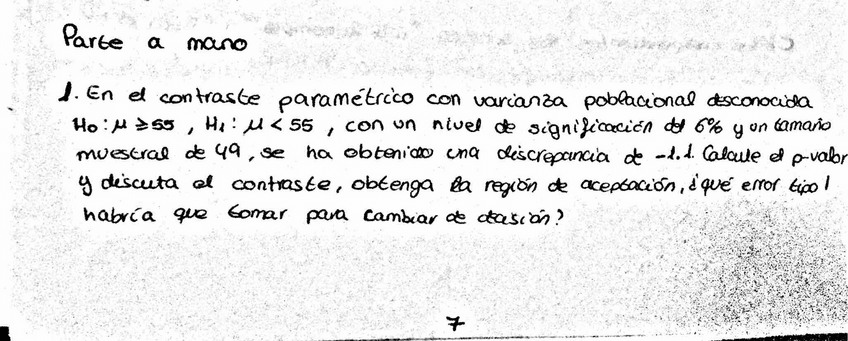 Parte a mano
1. En el contraste paramétrico con varianza poblacional desconocida
H₀: μ ≥ 55, H₁: μ < 55, con un nivel de significación del 6% y un tamaño
muestral de 49, se ha obtenido una discrepancia de -1.1. Calcule el p-valor
y discuta el contraste, obtenga la región de aceptación, ¿qué error tipo I
habría que tomar para cambiar de decisión?
7